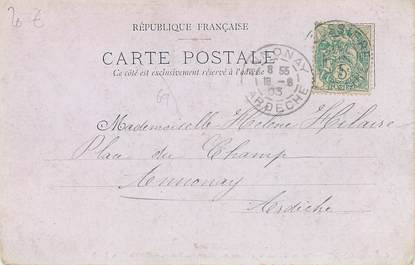 20 €
RÉPUBLIQUE FRANÇAISE
CARTE POSTALE
Ce côté est exclusivement réservé à l'adresse
8 55
18 -8
03
ARDECHE
Mademoiselle Hélène Hilaire
Place du Champ
Annonay
Ardèche